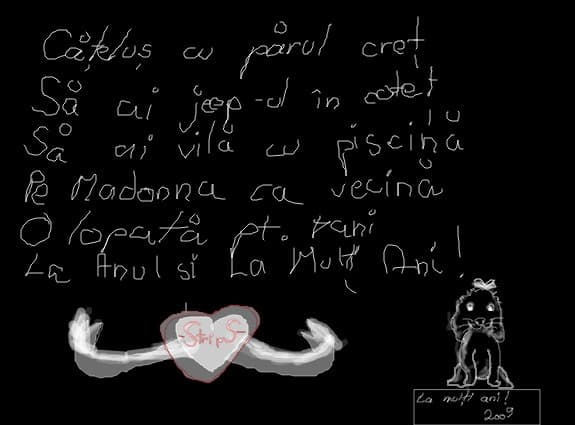 Cățeluș cu părul creț
Să ai jeep-ul în coteț
Să ai vilă cu piscină
Pe Madonna ca vecină
O lopată pt. bani
La Anul si La Mulți Ani!
-StripS-
La mulți ani!
2009